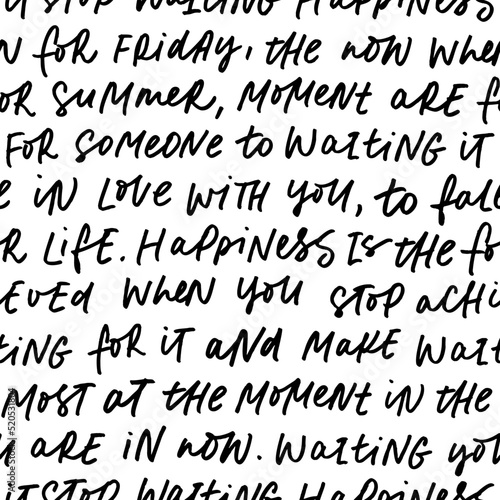 STOP WAITING HAPPINESS
N FOR FRIDAY, the now when
OR SUMMER, MOMENT ARE f
FOR SOMEONE to WAITING IT
e IN LOVE WITH YOU, to fall
R LIFE. HAPPINESS IS the fo
EVED WHEN YOU STOP ACHI
TING FOR IT AND MAKE WAIT
MOST AT the MOMENT IN the
ARE IN NOW. WAITING YOU
IT STOP WAITING HAPPINESS
Adobe Stock | #520531804